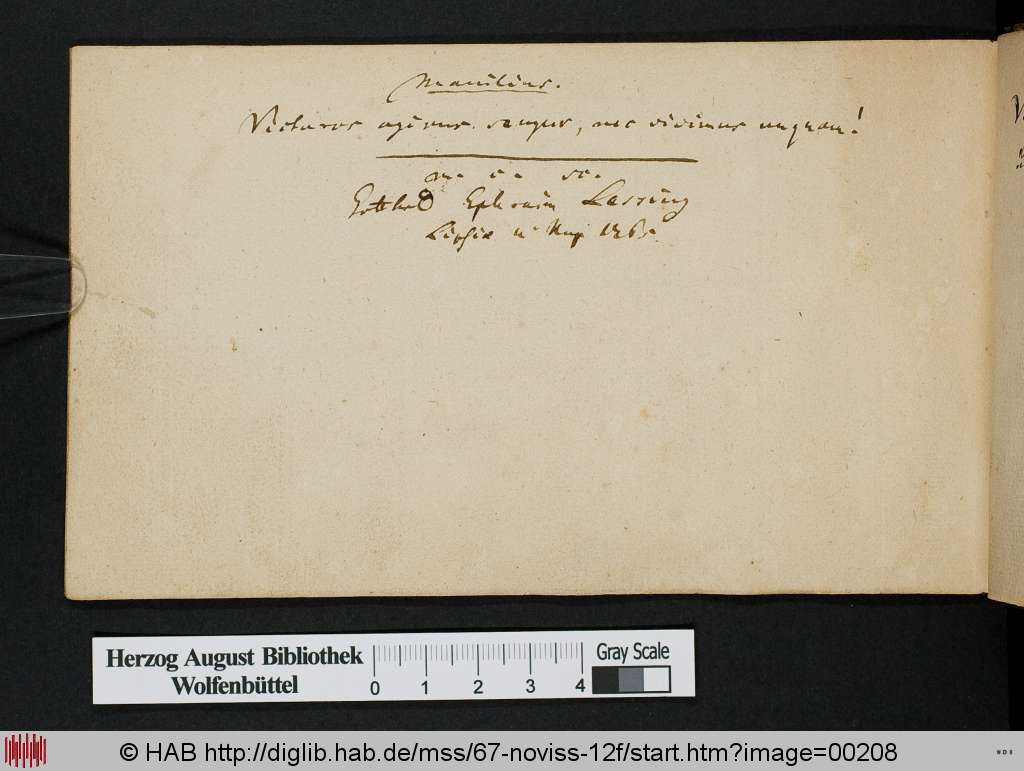 Manilius.
Victuros agimus semper, nec vivimus unquam!
m. c. sc.
Gotthold Ephraim Lessing
Lipsiae
Herzog August Bibliothek
Wolfenbüttel
0 1 2 3 4
Gray Scale
© HAB http://diglib.hab.de/mss/67-noviss-12f/start.htm?image=00208
WDB